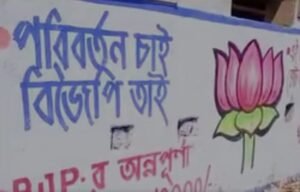 পরিবর্তন চাই
বিজেপি তাই
BJP-র অন্নপূর্ণা